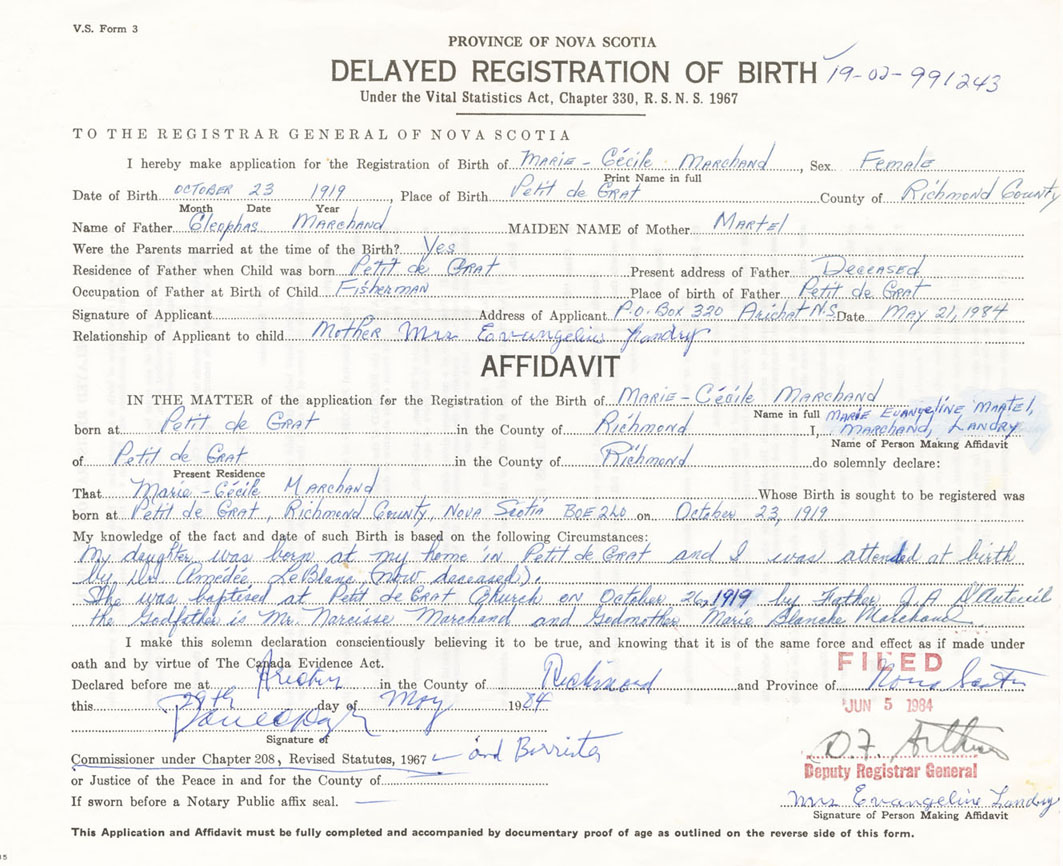 V.S. Form 3
PROVINCE OF NOVA SCOTIA
DELAYED REGISTRATION OF BIRTH 19-02-991243
Under the Vital Statistics Act, Chapter 330, R.S.N.S. 1967
TO THE REGISTRAR GENERAL OF NOVA SCOTIA
I hereby make application for the Registration of Birth of MARIE-Cécile MARCHAND, Sex Female
Print Name in full
Date of Birth OCTOBER 23 1919, Place of Birth Petit de GRAT County of Richmond County
Month Date Year
Name of Father Cleophas MARCHAND MAIDEN NAME of Mother MARTEl
Were the Parents married at the time of the Birth? Yes
Residence of Father when Child was born Petit de GRAT Present address of Father DECEASED
Occupation of Father at Birth of Child FisherMAN Place of birth of Father Petit de GRAT
Signature of Applicant Address of Applicant P.O. Box 320 Arichat N.S. Date MAY 21, 1984
Relationship of Applicant to child Mother Mrs Evangeline Landry
AFFIDAVIT
IN THE MATTER of the application for the Registration of the Birth of MARIE-Cécile MARCHAND
Name in full MARIE EVANgeliNE MARTEL,
born at Petit de GRAT in the County of Richmond I, MARCHAND, LANDRY
Name of Person Making Affidavit
of Petit de GRAT in the County of Richmond do solemnly declare:
Present Residence
That Marie-Cécile MARCHAND Whose Birth is sought to be registered was
born at Petit de GRAT, Richmond County, Nova Scotia BOE 2L0 on October 23, 1919
My knowledge of the fact and date of such Birth is based on the following Circumstances:
My daughter was born at my home in Petit de GRAT and I was attended at birth
by Dr Amédée LeBlanc (now deceased).
She was baptised at Petit de GRAT Church on October 26, 1919 by Father J.A D'Auteuil
the Godfather is Mr. Narcisse Marchand and Godmother Marie Blanche Marchand
I make this solemn declaration conscientiously believing it to be true, and knowing that it is of the same force and effect as if made under
oath and by virtue of The Canada Evidence Act.
FILED
Declared before me at Arichat in the County of Richmond and Province of Nova Scotia
this 29th day of May 1984
JUN 5 1984
Signature of
Commissioner under Chapter 208, Revised Statutes, 1967 and Barrister
Deputy Registrar General
or Justice of the Peace in and for the County of
If sworn before a Notary Public affix seal.
Mrs Evangeline Landry
Signature of Person Making Affidavit
This Application and Affidavit must be fully completed and accompanied by documentary proof of age as outlined on the reverse side of this form.
15